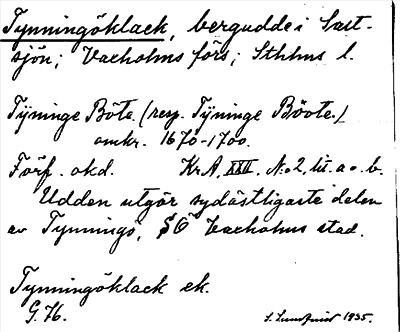 Tynningöklack, bergudde i Salt-
sjön; Vaxholms förs; Sthlms l.
Tÿninge Böte. (resp. Tÿninge Böote./
omkr. 1670-1700.
Förf. okd. Kr.A, XXII, N:o 2, lit. a o. b.
Udden utgör sydästligaste delen
av Tynningö, SO Vaxholms stad.
Tynningöklack ek.
G. 76.
S. Lundqvist 1935.